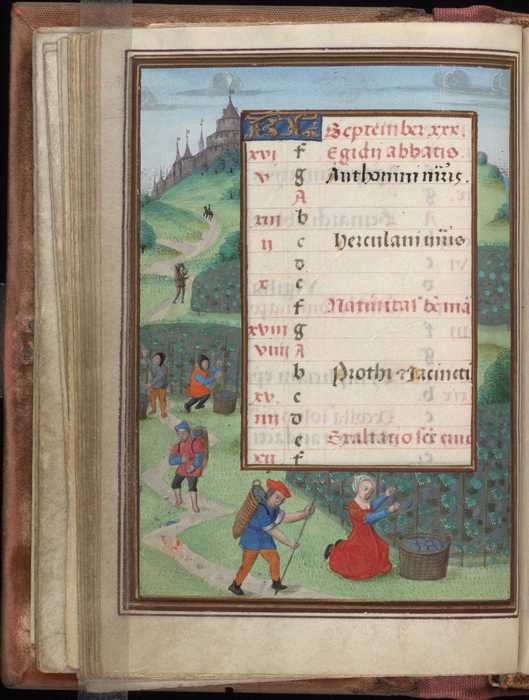 KL September.xxx.
xvi f Egidii abbatis
v g Anthonini mris.
A
xiii b
ii c Herculani mris
d
x e
f Natiuitas be ma
xviii g
vii A
b Prothi & Jacincti
xv c
iiii d
e Exaltatio sce cruc
xii f